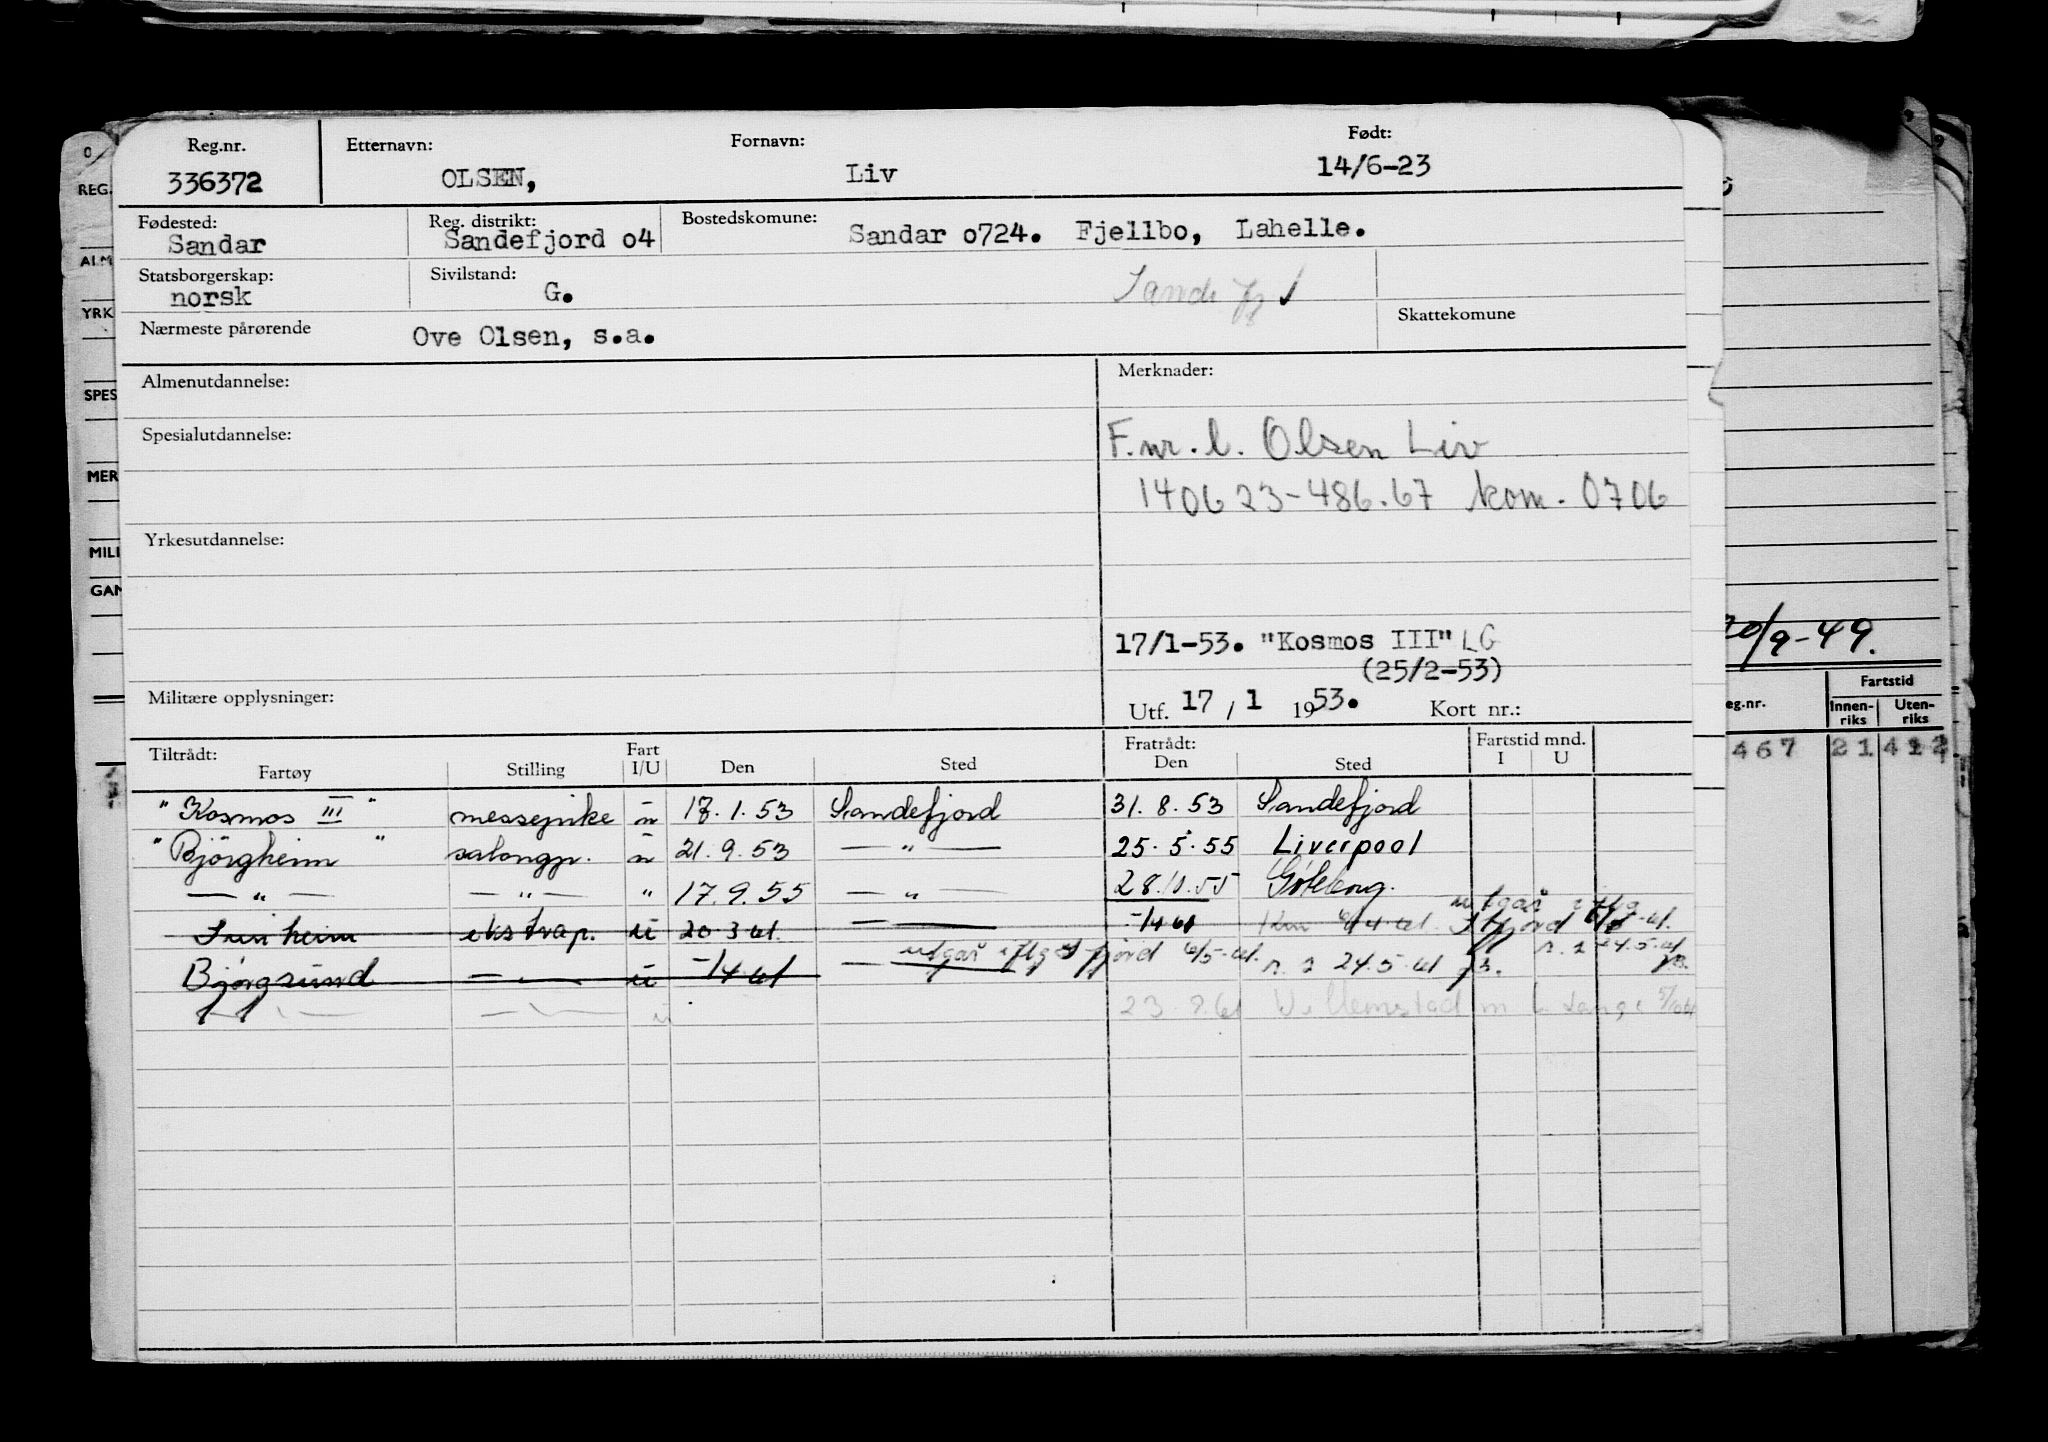 Reg.nr. Etternavn: Fornavn: Født:
336372 OLSEN, Liv 14/6-23
Fødested: Reg. distrikt: Bostedskomune:
Sandar Sandefjord o4 Sandar o724. Fjellbo, Lahelle.
Statsborgerskap: Sivilstand:
norsk G.
Nærmeste pårørende Ove Olsen, s.a. Skattekomune
Almenutdannelse: Merknader:
Spesialutdannelse: F.nr. l. Olsen Liv
140623-486.67 kom. 0706
Yrkesutdannelse:
17/1-53. "Kosmos III" LG
(25/2-53)
Militære opplysninger: Utf. 17 / 1 1953. Kort nr.:
Tiltrådt: Fart Fratrådt: Fartstid mnd.
Fartøy Stilling I/U Den Sted Den Sted I U
"Kosmos III" messepike u 17.1.53 Sandefjord 31.8.53 Sandefjord
"Björgheim" salongp. u 21.9.53 — " — 25.5.55 Liverpool
— " — — " — " 17.9.55 — " — 28.11.55 Göteborg.
utgår iflg
heim ekstrap. u 20.3.61. — -/4 61 6/4.61. fjord 6/5-61.
utgår iflg S fjord 6/5-61. 24.5.61
Björgsund — " — u -/4 61 — 24.5.61
u 23.9.61 Willemstad m
REG.
ALM
YRK
SPES
MER
MILI
GAN
20/9-49.
Fartstid
eg.nr. Innen-riks Uten-riks
467 21 412